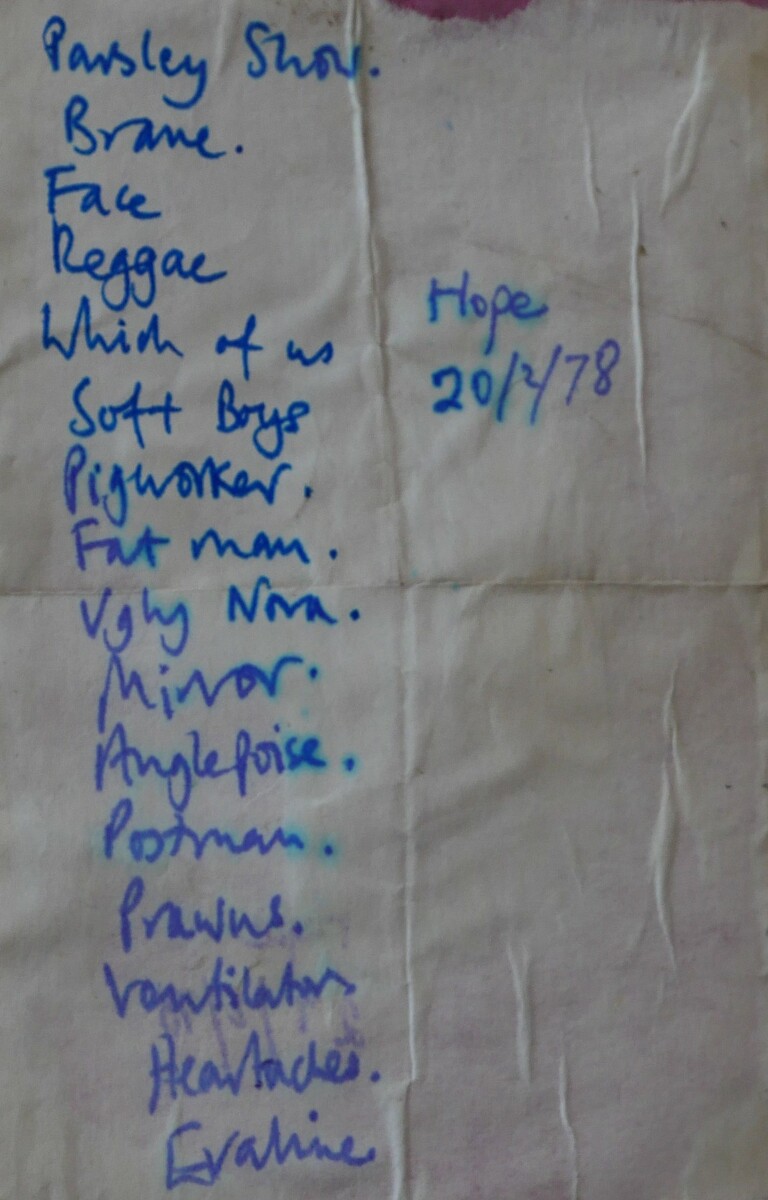 Parsley Show.
Brane.
Face
Reggae
Which of us
Soft Boys
Pigworker.
Fat man.
Ugly Nora.
Mirror.
Anglepoise.
Postman.
Prawns.
Ventilators
Heartaches.
Evaline.
Hope
20/2/78